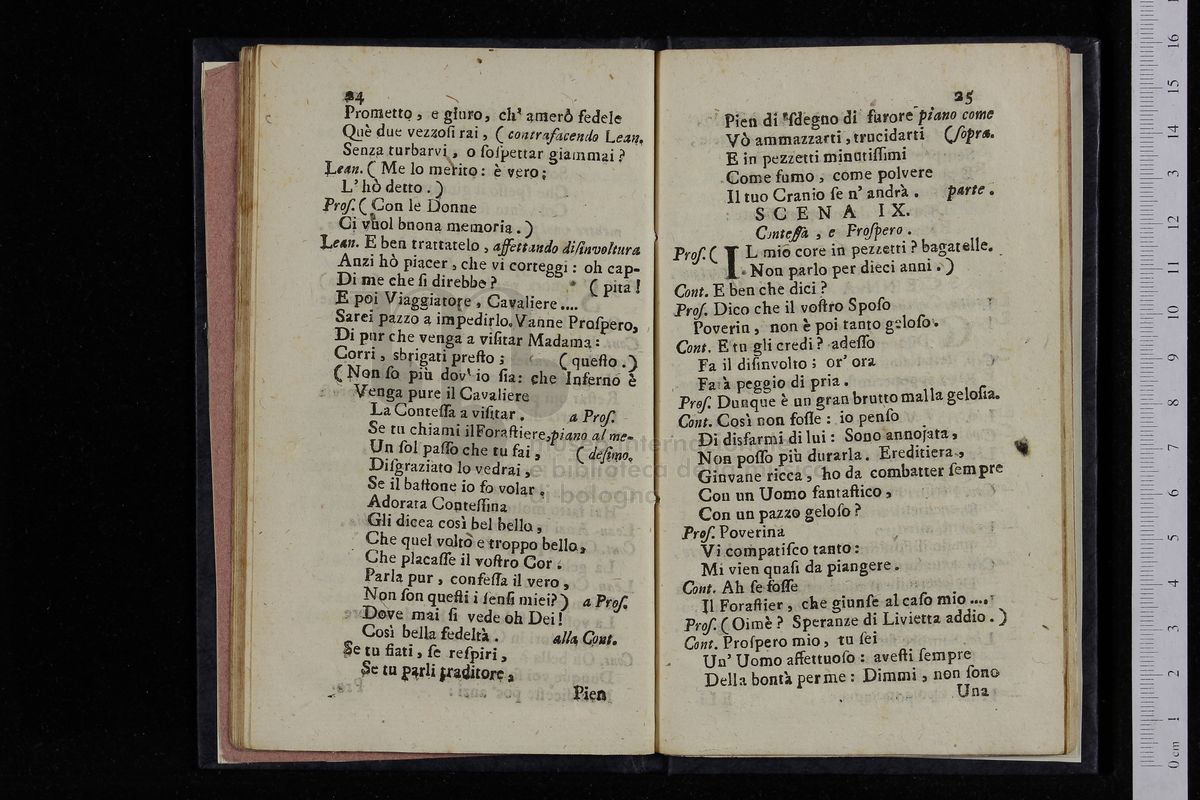 24
Prometto, e giuro, ch' amerò fedele
Què due vezzoſi rai, (contrafacendo Lean.
Senza turbarvi, o ſoſpettar giammai?
Lean. (Me lo merito: è vero;
L' hò detto.)
Proſ. (Con le Donne
Ci vuol bnona memoria.)
Lean. E ben trattatelo, affettando diſinvoltura
Anzi hò piacer, che vi corteggi: oh cap-
Di me che ſi direbbe? (pita!
E poi Viaggiatore, Cavaliere....
Sarei pazzo a impedirlo. Vanne Proſpero,
Di pur che venga a viſitar Madama:
Corri, sbrigati preſto; (queſto.)
(Non ſo più dov' io ſia: che Inferno è
Venga pure il Cavaliere
La Conteſſa a viſitar. a Proſ.
Se tu chiami il Foraſtiere, piano al me-
Un ſol paſſo che tu fai, (deſimo.
Diſgraziato lo vedrai,
Se il baſtone io fo volar.
Adorata Conteſſina
Gli dicea così bel bello,
Che quel volto e troppo bello,
Che placaſſe il voſtro Cor.
Parla pur, confeſſa il vero,
Non ſon queſti i ſenſi miei?) a Proſ.
Dove mai ſi vede oh Dei!
Così bella fedeltà. alla Cont.
Se tu fiati, ſe reſpiri,
Se tu parli traditore,
Pien
25
Pien di ſdegno di furore piano come
Vò ammazzarti, trucidarti (ſopra.
E in pezzetti minutiſſimi
Come fumo, come polvere
Il tuo Cranio ſe n' andrà. parte.
SCENA IX.
Cnteſſa, e Proſpero.
Proſ. (IL mio core in pezzetti? bagatelle.
Non parlo per dieci anni.)
Cont. E ben che dici?
Proſ. Dico che il voſtro Spoſo
Poverin, non è poi tanto geloſo.
Cont. E tu gli credi? adeſſo
Fa il diſinvolto; or' ora
Farà peggio di pria.
Proſ. Dunque è un gran brutto mal la geloſia.
Cont. Così non foſſe: io penſo
Di disfarmi di lui: Sono annojata,
Non poſſo più durarla. Ereditiera,
Giovane ricca, ho da combatter ſempre
Con un Uomo fantaſtico,
Con un pazzo geloſo?
Proſ. Poverina
Vi compatiſco tanto:
Mi vien quaſi da piangere.
Cont. Ah ſe foſſe
Il Foraſtier, che giunſe al caſo mio....
Proſ. (Oimè? Speranze di Livietta addio.)
Cont. Proſpero mio, tu ſei
Un' Uomo affettuoſo: aveſti ſempre
Della bontà per me: Dimmi, non ſono
Una
museo internazionale
e biblioteca della musica
di bologna
0 cm 1 2 3 4 5 6 7 8 9 10 11 12 13 14 15 16